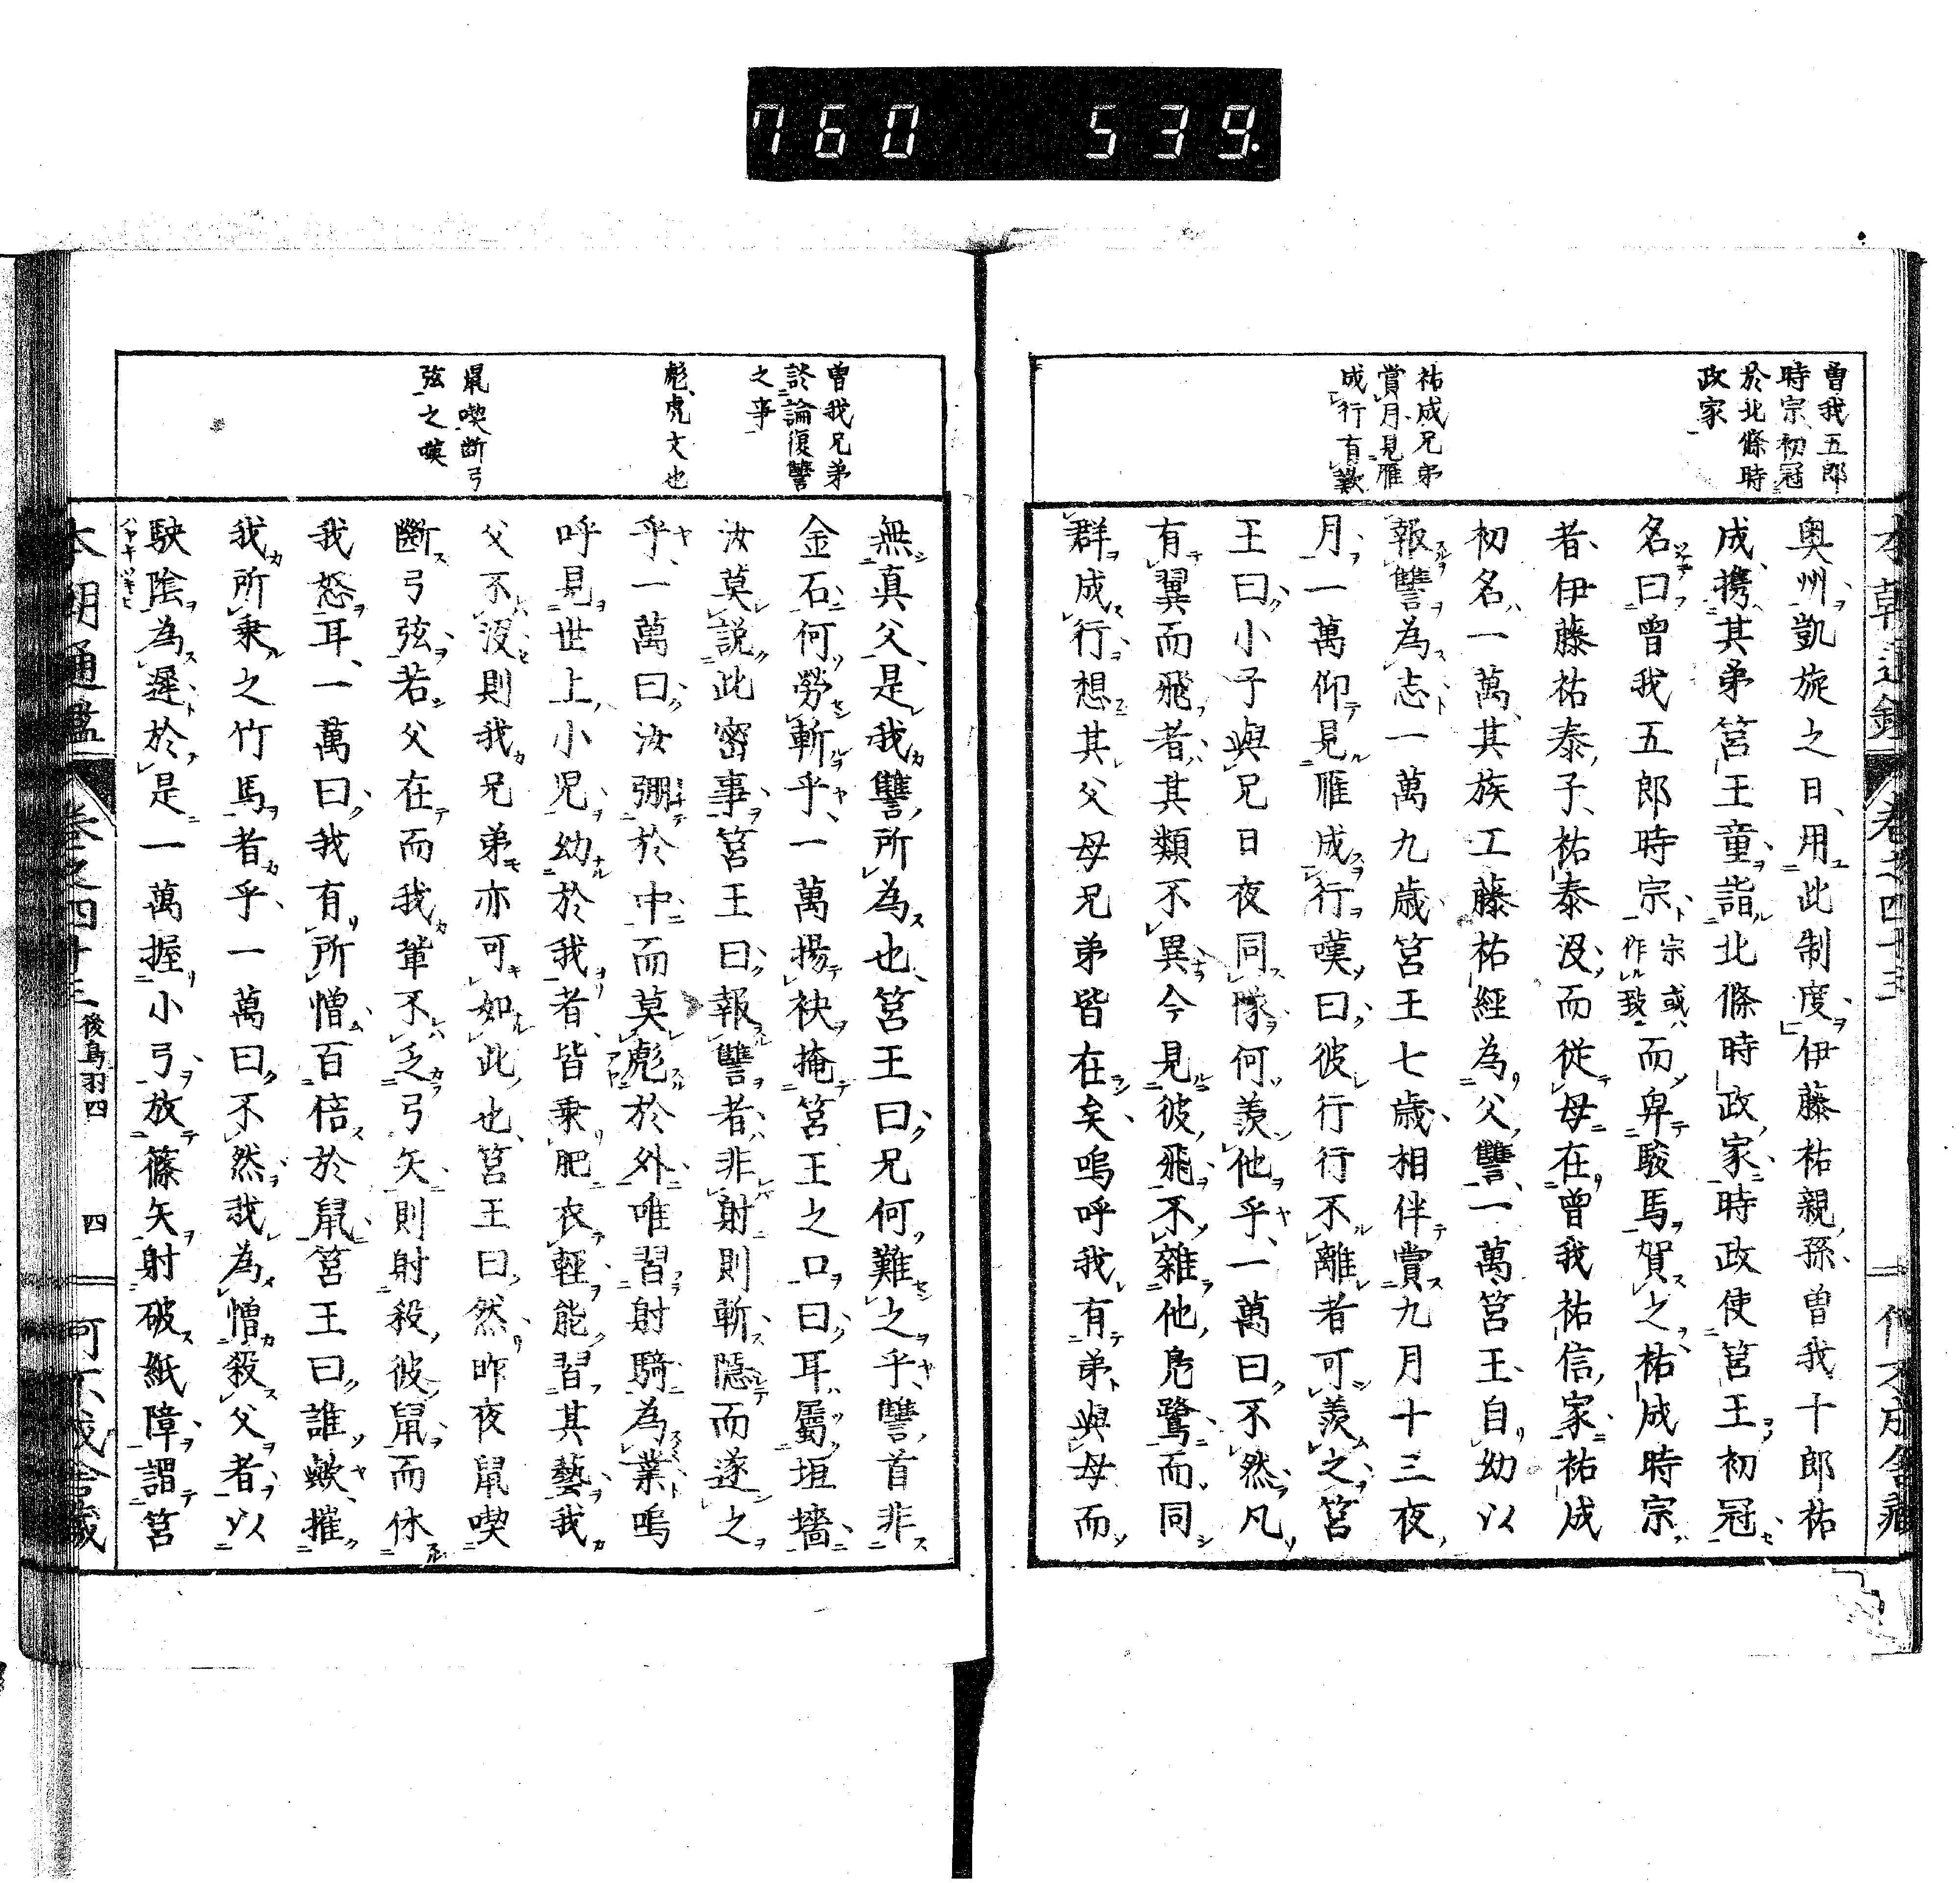 760 539.
曽我五郎
時宗初冠
於北條時
政家
祐成兄弟
賞月見雁
成行有歎
奥州凱旋之日用此制度伊藤祐親孫曽我十郎祐
成携其弟筥王童詣北條時政家時政使筥王初冠
名曰曽我五郎時宗宗或作致而卑駿馬賀之祐成時宗
者伊藤祐泰子祐泰没而従母在曽我祐信家祐成
初名一萬其族工藤祐經為父讐一萬筥王自幼以
報讐為志一萬九歳筥王七歳相伴賞九月十三夜
月一萬仰見雁成行嘆曰彼行行不離者可羨之筥
王曰小子與兄日夜同隊何羨他乎一萬曰不然凡
有翼而飛者其類不異今見彼飛不雜他鳬鷺而同
群成行想其父母兄弟皆在矣嗚呼我有弟與母而
曽我兄弟
於論復讐
之事
彪虎文也
鼠喫断弓
弦之嘆
無真父是我讐所為也筥王曰兄何難之乎讐首非
金石何勞斬乎一萬揚袂掩筥王之口曰耳屬垣墻
汝莫説此密事筥王曰報讐者非射則斬隱而遂之
乎一萬曰汝弸於中而莫彪於外唯習射騎為業嗚
呼見世上小児幼於我者皆乗肥衣輕能習其藝我
父不没則我兄弟亦可如此也筥王曰然昨夜鼠喫
斷弓弦若父在而我輩不乏弓矢則射殺彼鼠而休
我怒耳一萬曰我有所憎百倍於鼠筥王曰誰歟摧
我所乗之竹馬者乎一萬曰不然我為憎殺父者以
駛陰為遲於是一萬握小弓放篠矢射破紙障謂筥
本朝通鑑 巻之四十三 後鳥羽四 四